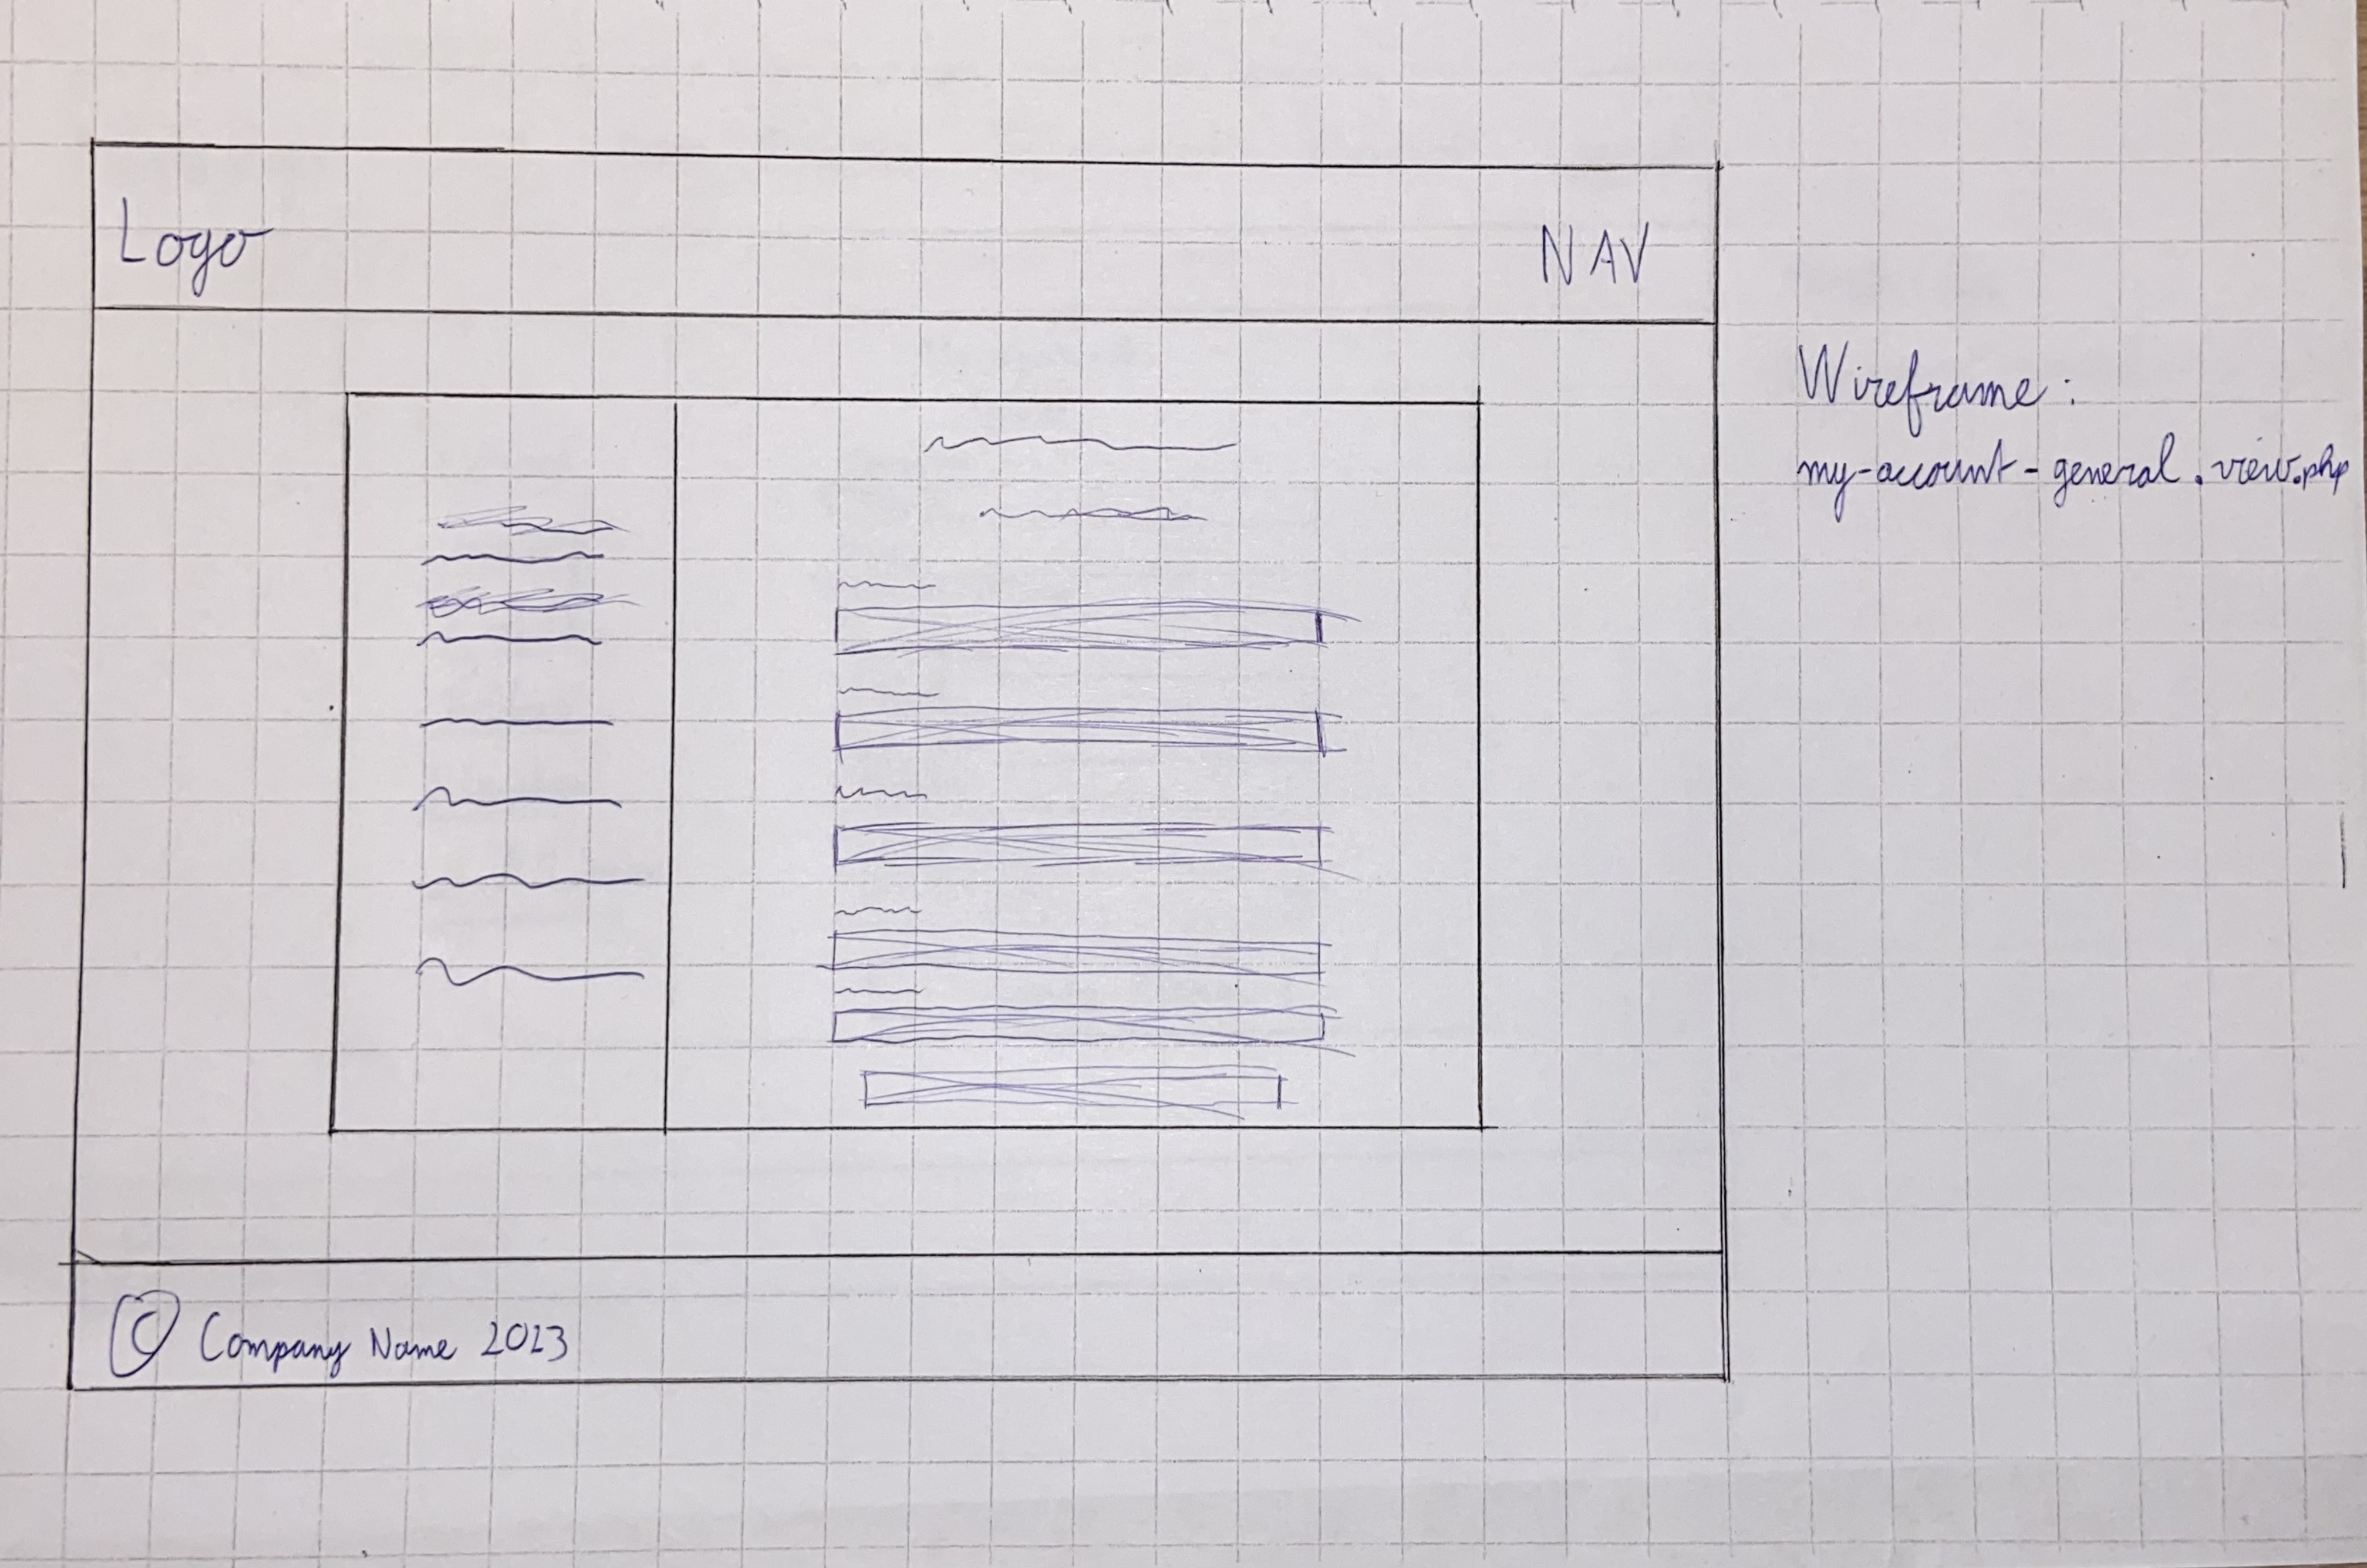 Logo
NAV
Wireframe:
my-account-general.view.php
© Company Name 2023